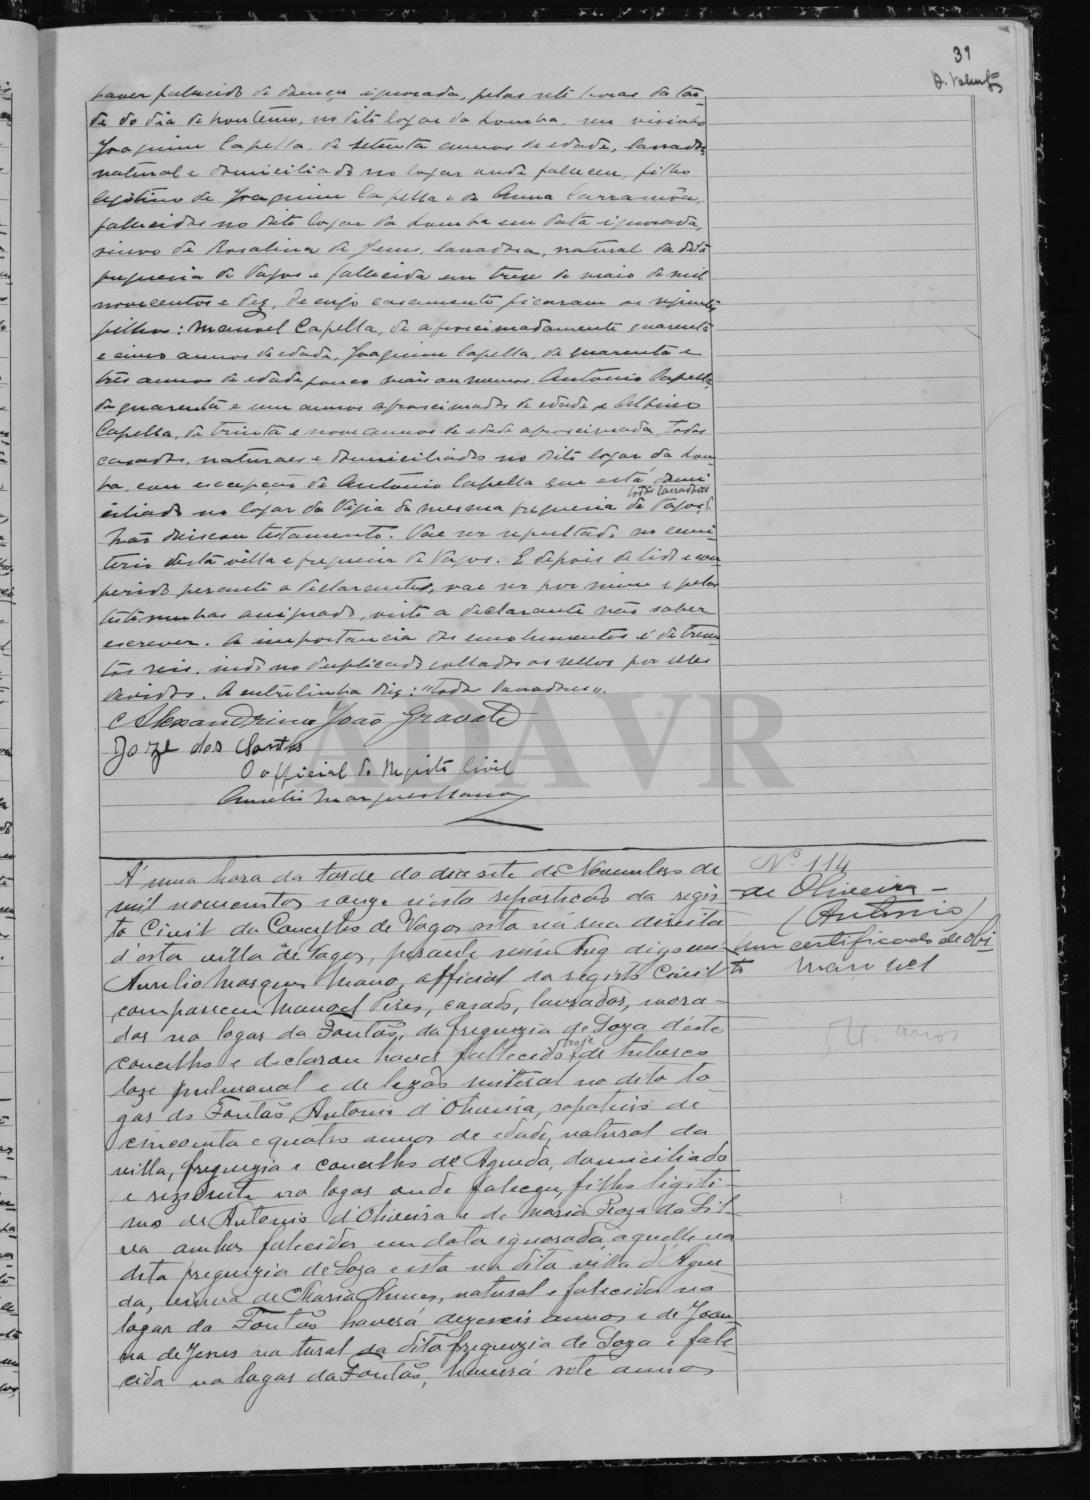 31
haver fallecido de doença ignorada, pelas sete horas da tar-
de do dia de hontem, no dito logar da Lomba, seu visinho
Joaquim Capella, de setenta annos de edade, lavrador,
natural e domiciliado no logar onde falleceu, filho
legitimo de Joaquim Capella e de Anna
fallecidos no dito logar da Lomba em data ignorada,
viuvo de Rosalina de Jesus, lavradora, natural da dita
freguesia de Vagos e fallecida em treze de maio de mil
novecentos e dez, de cujo casamento ficaram os seguintes
filhos: Manuel Capella, de aproximadamente quarenta
e cinco annos de edade, Joaquim Capella, de quarenta e
três annos de edade pouco mais ou menos, Antonio Capella,
de quarenta e um annos aproximados de edade e Albino
Capella, de trinta e nove annos de edade aproximada, todos
casados, naturaes e domiciliados no dito logar da Lom-
ba, com excepção de Antonio Capella que está domi-
todos lavradores
ciliado no logar da Vigia da mesma freguesia de Vagos.
Não deixou testamento. Vae ser sepultado no cemi-
terio desta villa e freguesia de Vagos. E depois de lido e con-
ferido perante a declarante, vae ser por mim e pelas
testemunhas assignado, visto a declarante não saber
escrever. A importancia dos emolumentos é de trezen-
tos reis, indo no duplicado collados os sellos por elles
devidos. A entrelinha diz: "todos lavradores".
Alexandrino João Gravato
Joze dos Santos
O official do Registo Civil
Aurelio Marques Mano
ADAVR
Á uma hora da tarde do dia sete de Novembro de
mil novecentos e onze n'esta repartição do regis-
to Civil do Concelho de Vagos sita na rua direita
d'esta villa de Vagos, perante mim Aug digo em
Aurelio Marques Mano, official do registo Civil
compareceu Manoel Pires, casado, lavrador, mora-
dor no logar da Fontão, da freguezia de Soza d'este
concelho e declarou haver fallecido hoje de tuberco-
loze pulmonal e de lezão mitral no dito lo-
gar do Fontão, Antonio d'Oliveira, sapateiro de
cincoenta e quatro annos de edade, natural da
villa, freguezia e concelho de Agueda, domiciliado
e rezidente no logar onde faleceu, filho legiti-
mo de Antonio d'Oliveira e de Maria Roza da Sil-
va ambos falecidos em data ignorada aquelle na
dita freguezia de Soza e esta na dita villa d'Ague-
da, viuvo de Maria Nunes, natural e falecida no
logar da Fontão haverá dezeseis annos e de Joan-
na de Jesus natural da dita freguezia de Soza e fale-
cida no logar da Fontão, haverá sete annos
Nº 114
de Oliveira
(Antonio)
um certificado de obi-
to
54 annos